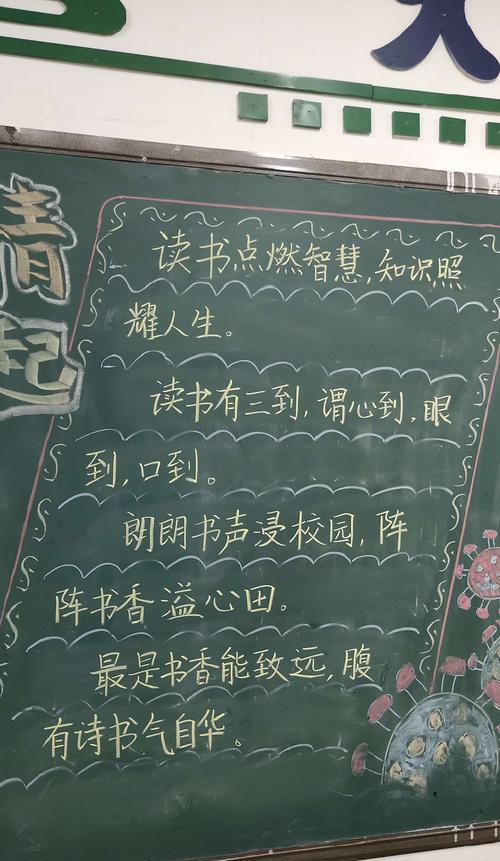 读书点燃智慧,知识照
耀人生。
读书有三到,谓心到,眼
到,口到。
朗朗书声浸校园,阵
阵书香溢心田。
最是书香能致远,腹
有诗书气自华。
起